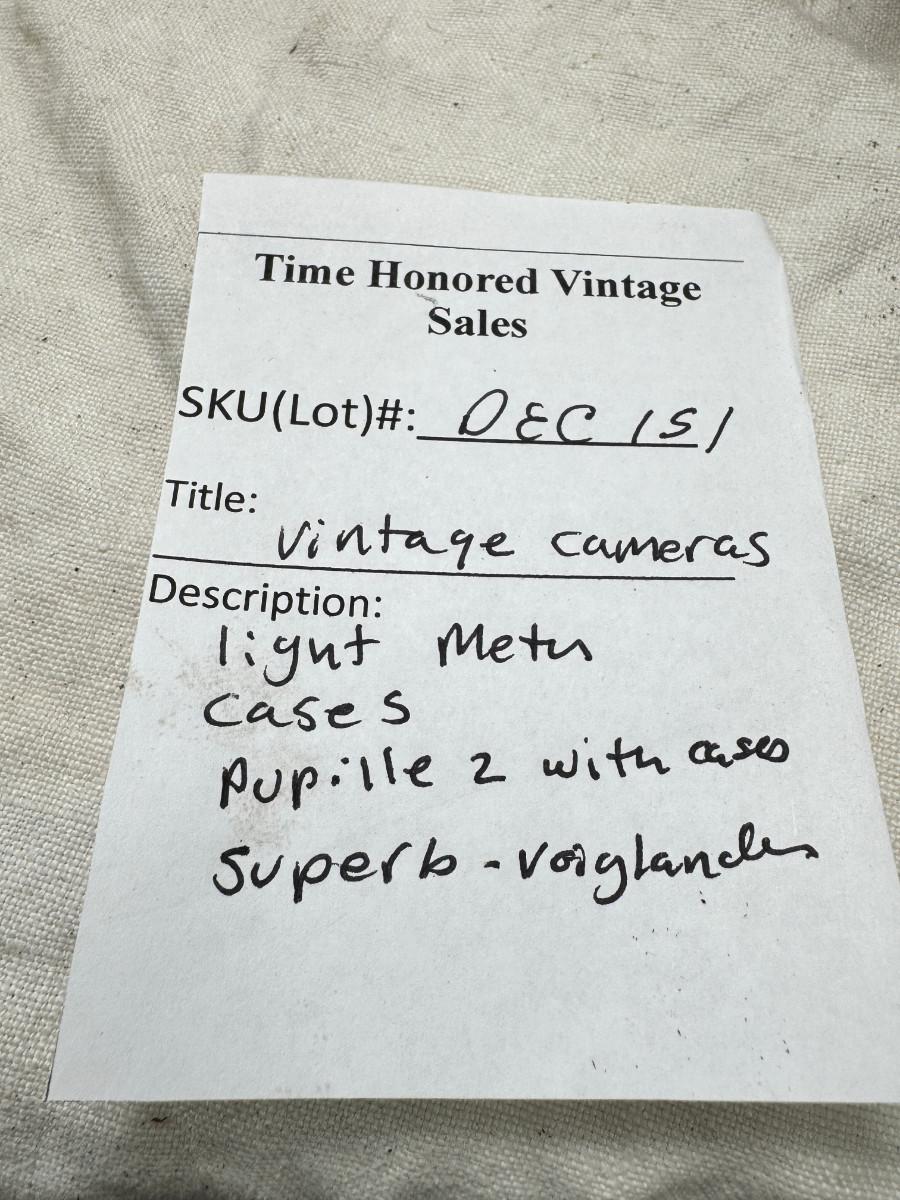 Time Honored Vintage
Sales
SKU(Lot)#: DEC 151
Title:
Vintage cameras
Description:
light Meter
Cases
Pupille 2 with cases
Superb - Voiglander